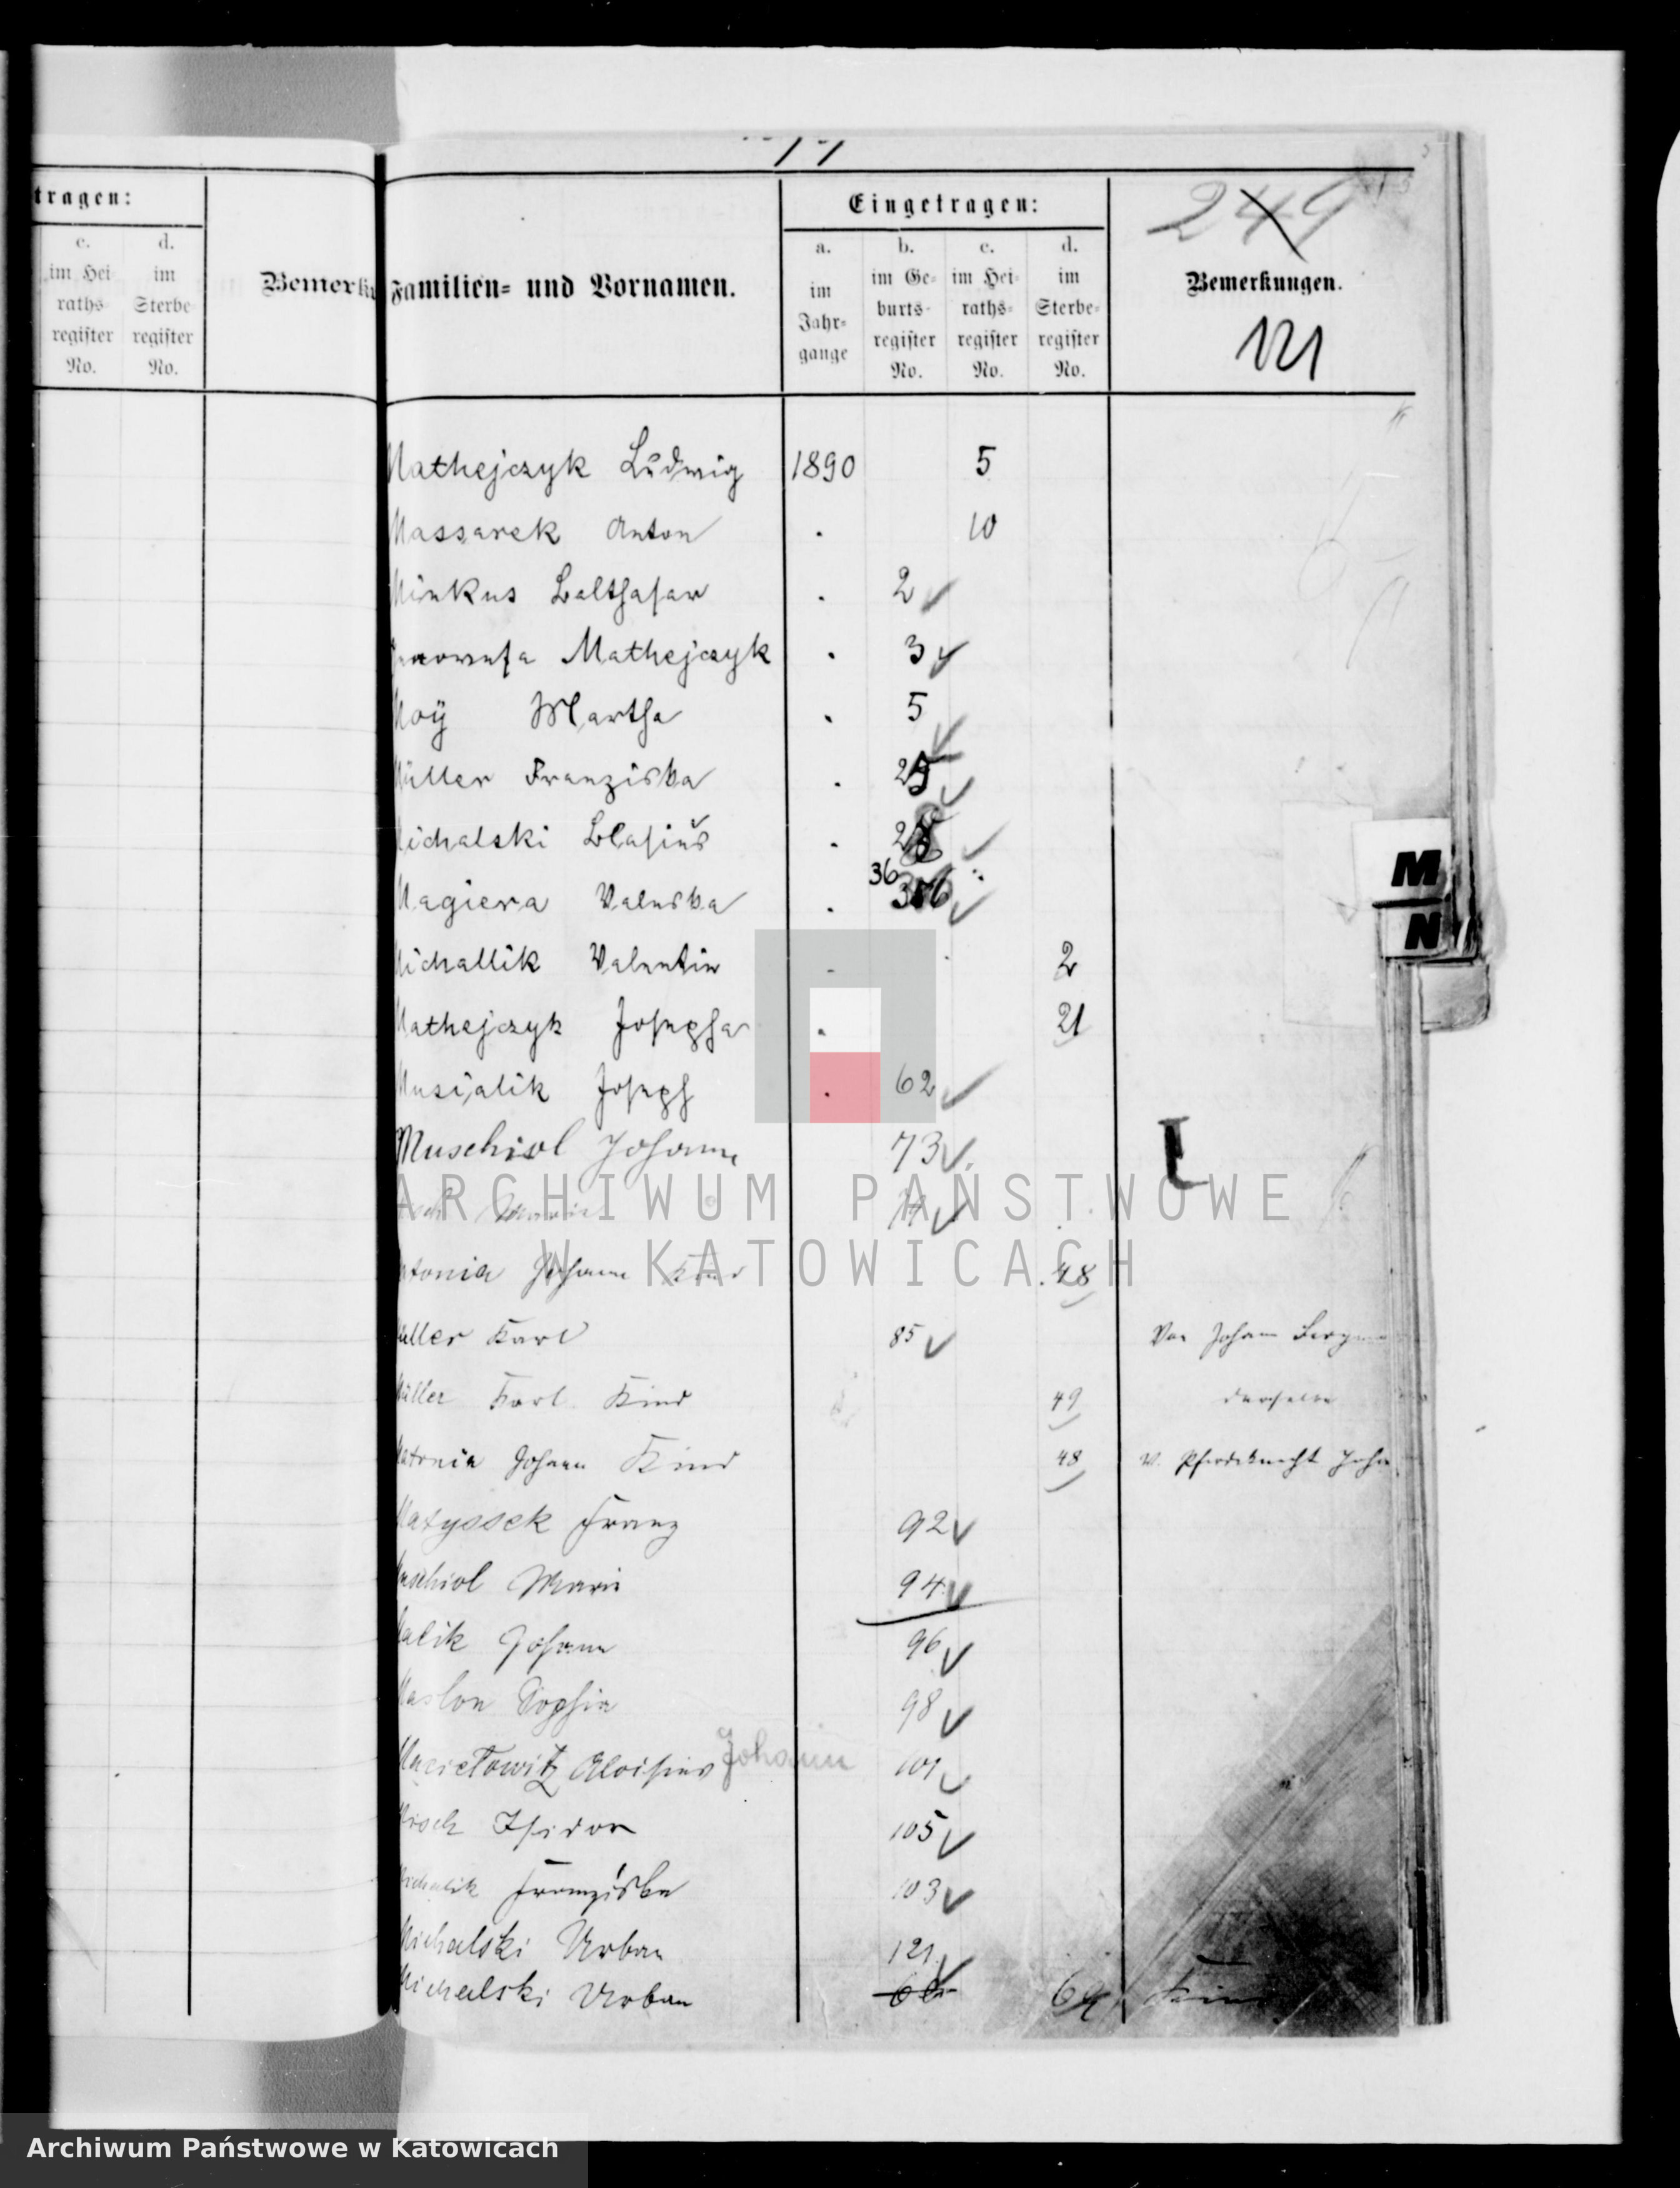 tragen:
c. d.
im Hei- im
raths- Sterbe-
register register
No. No.
Bemerku
249
Familien- und Vornamen.
Eingetragen:
a. im Jahr-gange
b. im Ge-burts-register No.
c. im Hei-raths-register No.
d. im Sterbe-register No.
Bemerkungen.
121
Mathejczyk Ludwig 1890 5
Massarek Anton . 10
Minkus Balthasar . 2 ✓
Mathejczyk . 3 ✓
Moÿ Martha . 5 ✓
Müller Franziska . 25 ✓
Michalski Blasius . 28 ✓
Magiera Valeska . 36 ✓
Michallik Valentin . 2
Mathejczyk Josepha . 21
Musialik Joseph . 62 ✓
Muschiol Johann 73 ✓
Johann Kind 48
Müller Karl 85 ✓ Johann
Müller Karl Kind 49 derselbe
Johann Kind 48 v. Pferdeknecht
Matyssek Franz 92 ✓
Muschiol Marie 94 ✓
Malik Johann 96 ✓
Maslon Sophie 98 ✓
Aloisius Johann 101 ✓
Isidor 105 ✓
Michalik Franziska 103 ✓
Michalski Urban 121 ✓
Michalski Urban 64 Kind
M
N
L
ARCHIWUM PAŃSTWOWE
W KATOWICACH
Archiwum Państwowe w Katowicach